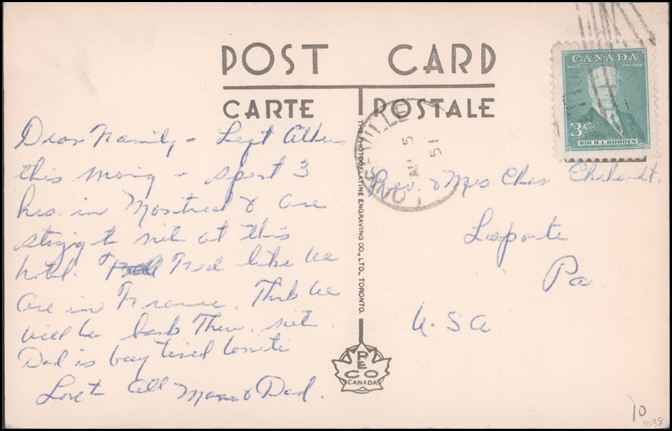 POST CARD
CARTE POSTALE
CANADA
3¢
SIR R.L. BORDEN
AU 5
51
THE PHOTOGELATINE ENGRAVING CO., LTD., TORONTO.
PECO
CANADA
Dear Family - Left
this morng - spent 3
hrs. in Montreal & are
staying to nite at this
hotel. Feel like we
are in France. Think we
will be back Thur. nite
Dad is
Love to all Mom & Dad.
Rev. & Mrs Chas Ehrhardt.
Laporte
Pa
U.S.A
10